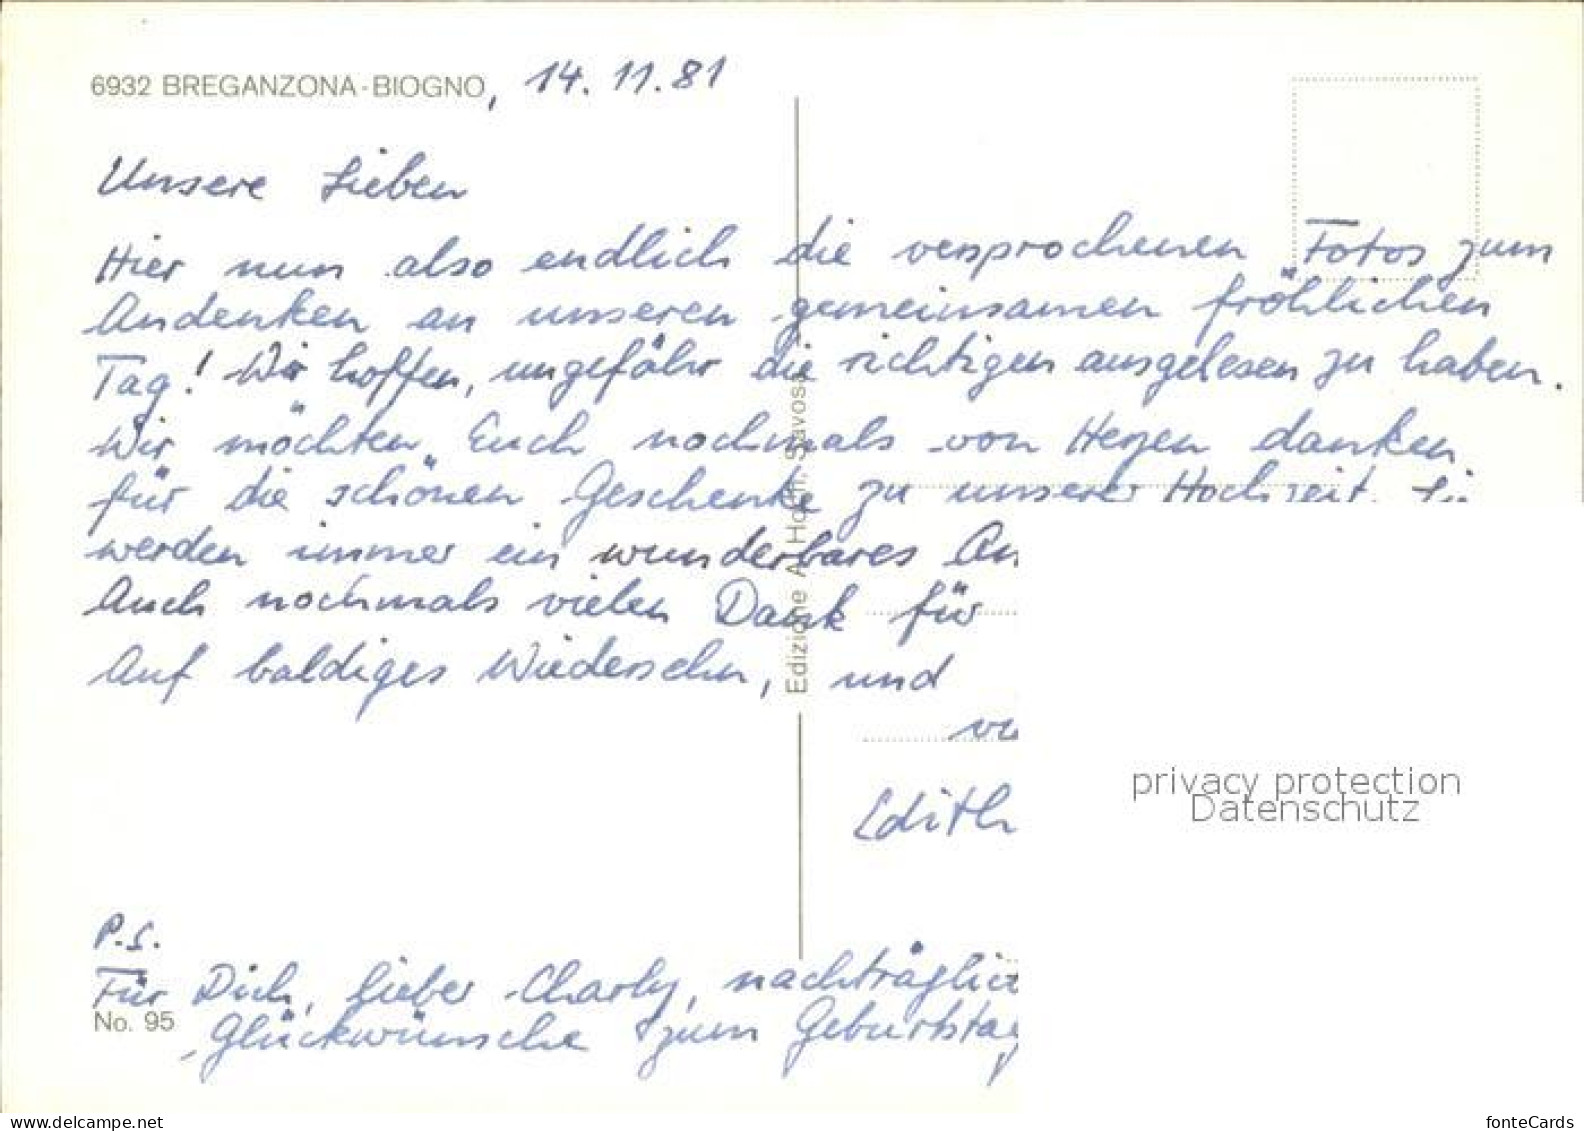 6932 BREGANZONA-BIOGNO, 14.11.81
Unsere Lieben
Hier nun also endlich die versprochenen Fotos zum
Andenken an unseren gemeinsamen fröhlichen
Tag! Wir hoffen, ungefähr die richtigen ausgelesen zu haben.
Wir möchten Euch nochmals von Herzen danken
für die schönen Geschenke zu unserer Hochzeit. Si
werden immer ein wunderbares An
Auch nochmals vielen Dank für
Auf baldiges Wiedersehn, und
Edith
P.S.
Für Dich, lieber Charly, nachträglic
Glückwünsche zum Geburtstag
No. 95
Edizione A. Hoffi, Savosa
privacy protection
Datenschutz
fonteCards